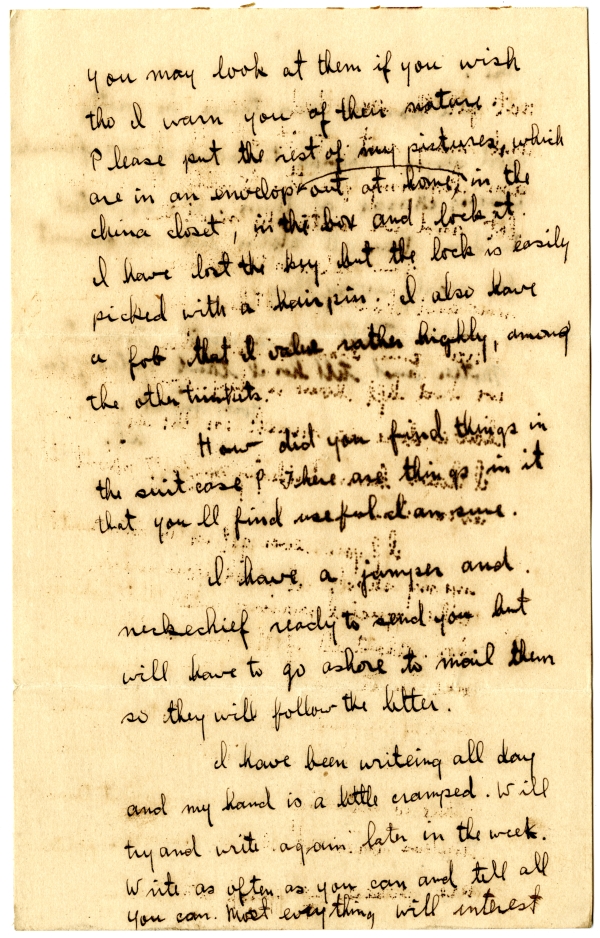 you may look at them if you wish
tho I warn you of their nature.
Please put the rest of my pictures, which
are in an envelop out at home, in the
china closet, in the box and lock it.
I have lost the key but the lock is easily
picked with a hairpin. I also have
a fob that I value rather highly, among
the other trinkets.
How did you find things in
the suit case? There are things in it
that you'll find useful I am sure.
I have a jumper and
neckechief ready to send you but
will have to go ashore to mail them
so they will follow the letter.
I have been writeing all day
and my hand is a little cramped. Will
try and write again later in the week.
Write as often as you can and tell all
you can. Most everything will interest